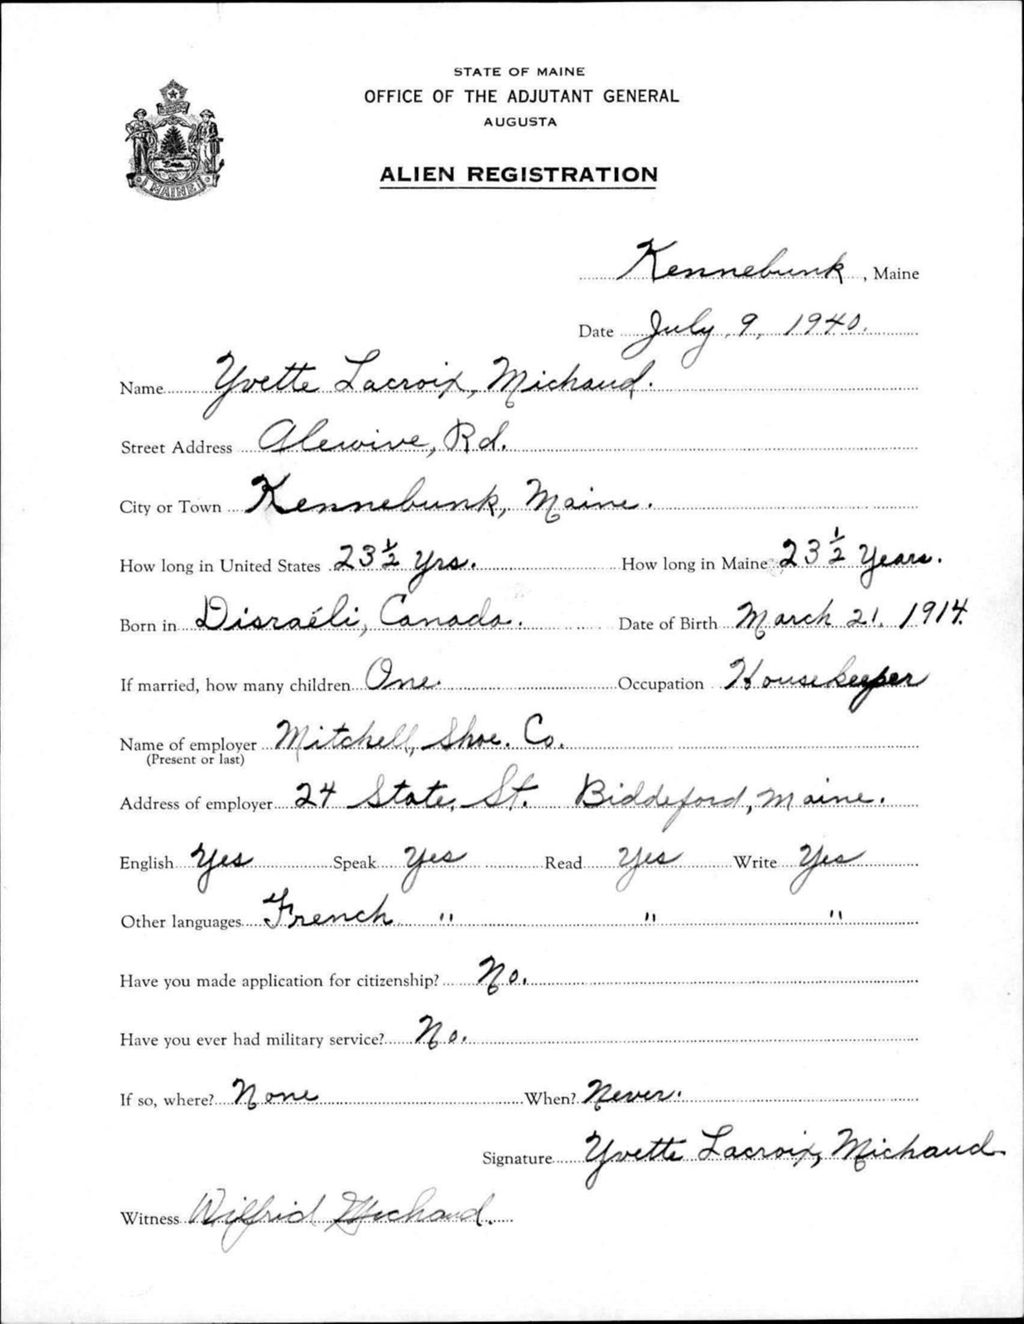 STATE OF MAINE
OFFICE OF THE ADJUTANT GENERAL
AUGUSTA
ALIEN REGISTRATION
MAINE
Kennebunk, Maine
Date July 9, 1940.
Name Yvette Lacroix, Michaud.
Street Address Alewive, Rd.
City or Town Kennebunk, Maine.
How long in United States 23 1/2 Yrs. How long in Maine 23 1/2 Years.
Born in Disraéli, Canada. Date of Birth March 21, 1914.
If married, how many children One. Occupation Housekeeper
Name of employer Mitchell, Shoe. Co.
(Present or last)
Address of employer 24 State, St. Biddeford, Maine.
English Yes Speak Yes Read Yes Write Yes
Other languages French " " "
Have you made application for citizenship? No.
Have you ever had military service? No.
If so, where? None When? Never.
Signature Yvette Lacroix, Michaud
Witness Wilfrid Michaud.